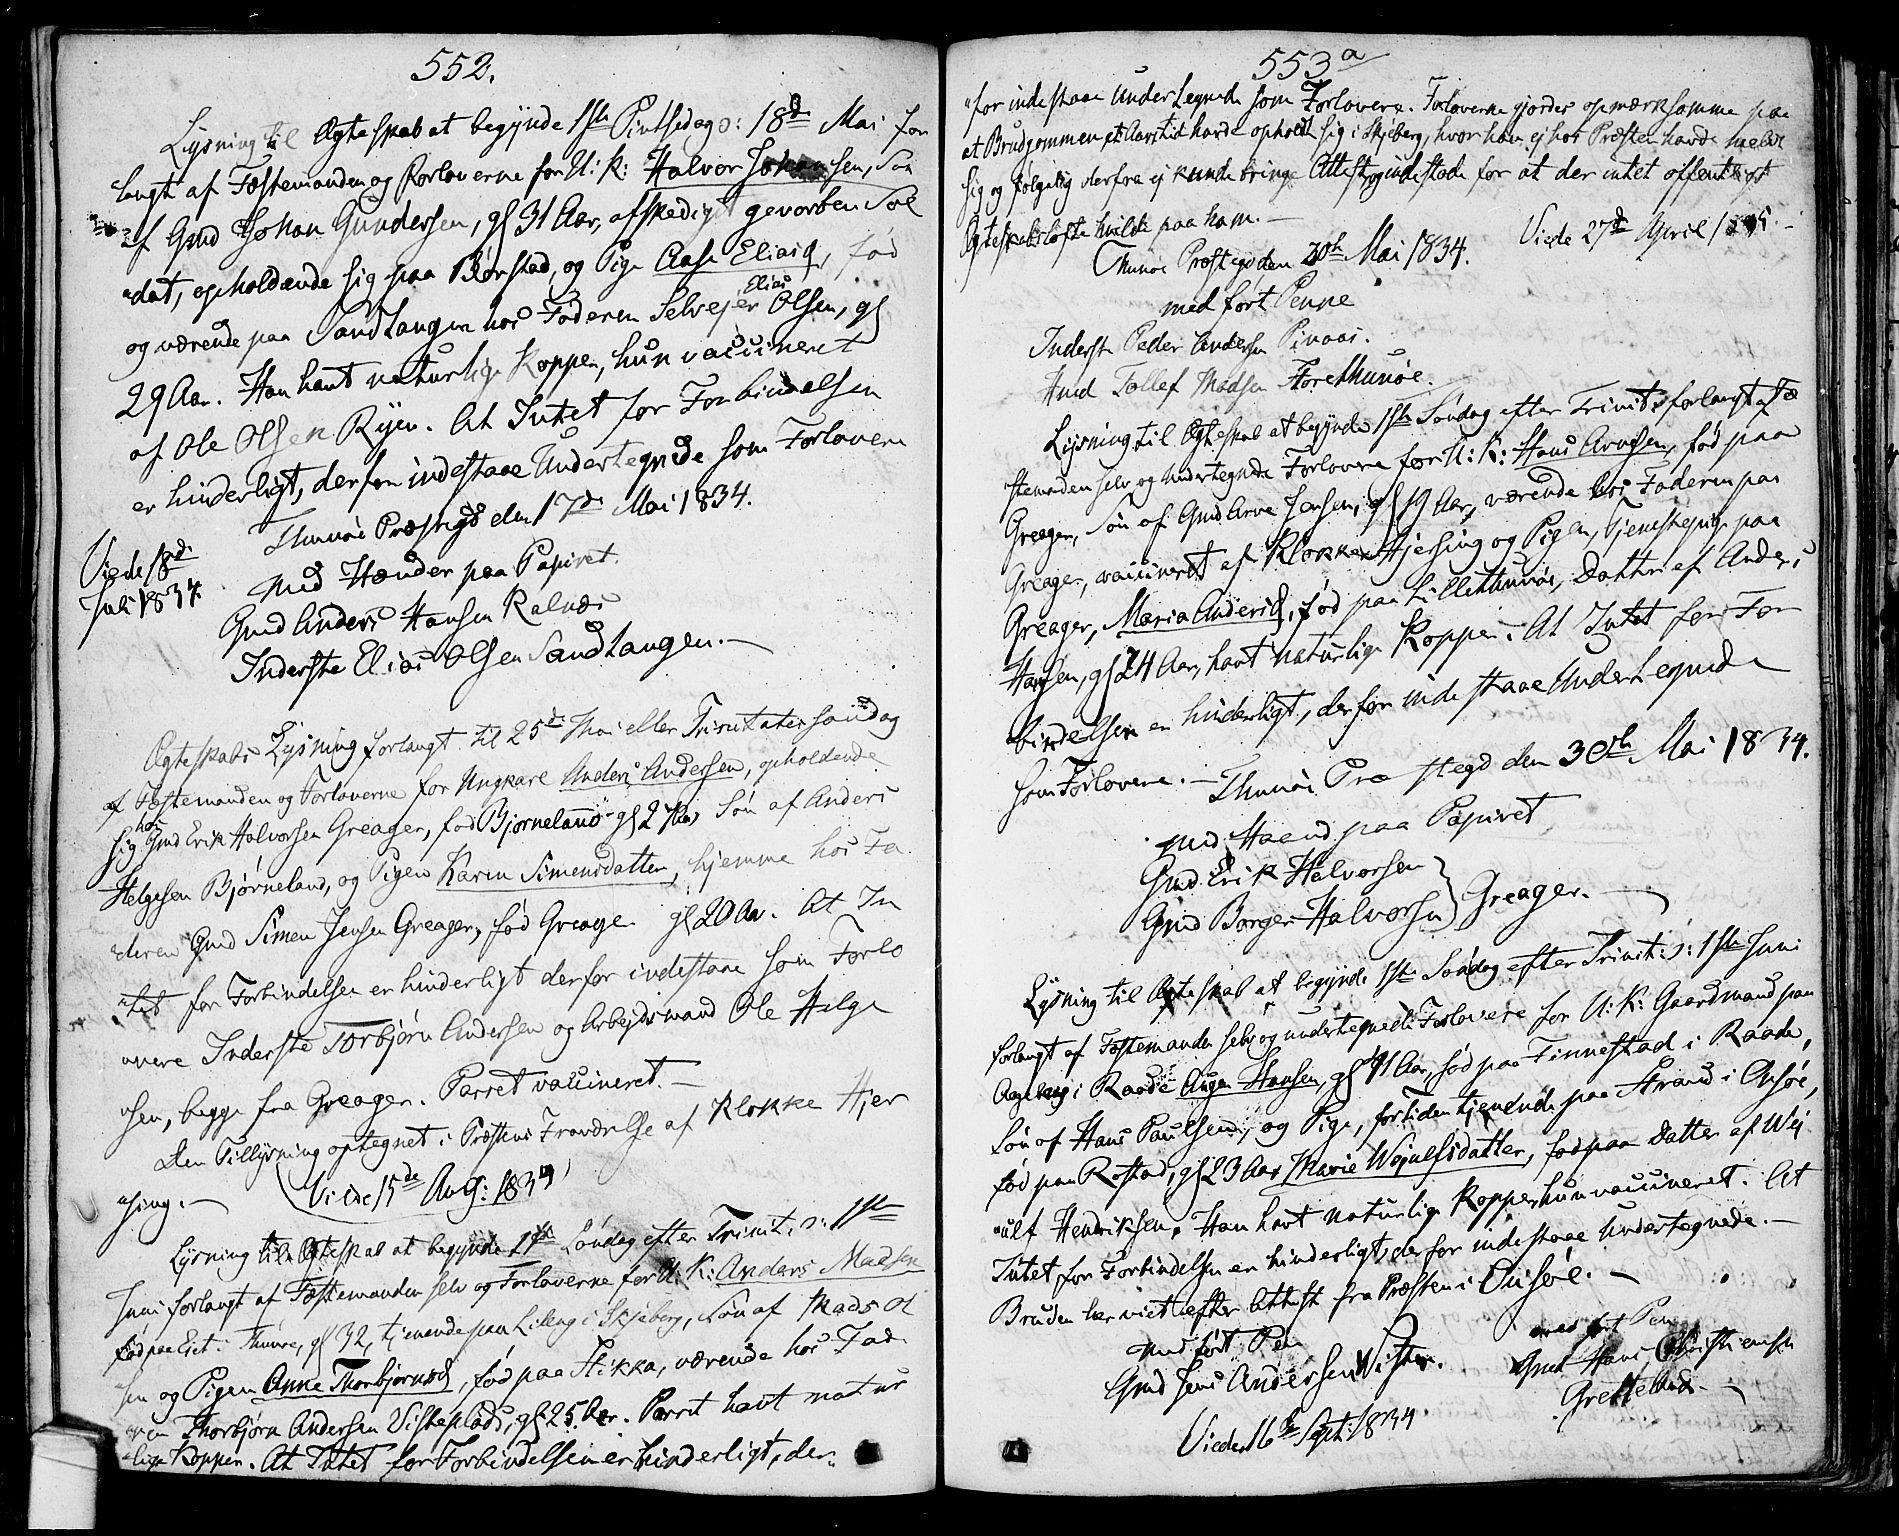 552.
Lysning til Ægteskab at begynde 1ste Pintsedag ɔ: 18de Mai for
langt af Fæstemanden og Forloverne for U: K: Halvor Johansen, Søn
af Gmd Johan Gundersen, gl 31 Aar, afskediget gevorben Sol
"dat, opholdende sig paa Borstad, og Pige Aase Eliasd, fød
og værende paa Sandtangen hos Faderen Selvejer Elias Olsen, gl
29 Aar. Han havt naturlige Kopper, hun vaccineret
af Ole Olsen Ryen. At Intet for Forbindelsen
er hinderligt, derfor indestaae Undertegnede som Forlovere
Thunøe Præstegd den 17de Mai 1834.
Viede 18de
Juli 1834
med Hænder paa Papiret.
Gmd Anders Hansen Kalnæs
Inderste Elias Olsen Sandtangen.—
Ægteskabs Lysning forlangt til 25de Mai eller Trinitatis søndag
af Fæstemanden og Forloverne for Ungkarl Anders Andersen, opholdende
sig hos Gmd Erik Halvorsen Greager, fød Bjørneland gl 27 Aar Søn af Anders
Helgesen Bjørneland, og Pigen Karen Simensdatter, hjemme hos Fa
"deren Gmd Simen Jensen Greager, fød Greager gl 20 Aar. At In
"tet for Forbindelsen er hinderligt derfor indestaae som Forlo
"vere Inderste Torbjørn Andersen og Arbejdsmand Ole Helge
"sen, begge fra Greager. Parret vaccineret.—
Den Tillysning optegnet i Præstens Fraværelse af Klokker Hjer
"sing.— Viede 15de Aug: 1834
Lysning til Ægteskab at begynde 1ste Søndag efter Trinit: ɔ: 1ste
Juni forlangt af Fæstemanden selv og Forloverne for U: K: Anders Madsen
fød paa Eiet i Thunøe, gl 32, tjenende paa Lilleng i Skjeberg, Søn af Mads Ol
sen og Pigen Anne Thorbjørnsd, fød paa Stikka, værende hos Fad
eren Thorbjørn Andersen Visteplads, gl 25 Aar. Parret havt natur
"lige Kopper. At Intet for Forbindelsen er hinderligt, der:
553 a
"for indestaae Undertegnede som Forlovere. Forloverne gjordes opmærksomme paa
at Brudgommen et Aarstid havde opholdt sig i Skjeberg, hvor han ej hos Præsten havde meldt
sig og følgelig derfra ej kunde bringe Attest og indestode for at der intet offentligt
Ægteskabsløfte hvilde paa ham.—
Viede 27de April 1835.
Thunøe Præstegd den 30te Mai 1834.
med ført Penne
Inderste Peder Andersen Pinaas.
Hmd Tollef Madsen Storethunøe.
Lysning til Ægteskab at begynde 1ste Søndag efter Trinits forlangt af Fæ
stemanden selv og undertegnede Forlovere for U: K: Hans Arnesen, fød paa
Greager, Søn af Gmd Arne Jensen, gl 19 Aar, værende hos Faderen paa
Greager, vaccineret af Klokker Hjersing og Pigen, Tjenestepige paa
Greager, Maria Andersd, fød paa Lillethunøe, Datter af Anders
Hansen, gl 24 Aar, havt naturlige Kopper. At Intet for For
bindelsen er hinderligt, derfor indestaae Undertegnede
som Forlovere.— Thunøe Præstegd den 30te Mai 1834.
med Haand paa Papiret
Gmd Erik Halvorsen
Gmd Borger Halvorsen } Greager.—
Lysning til Ægteskab at begynde 1ste Søndag efter Trinit: ɔ: 1ste Juni
forlangt af Fæstemanden selv og undertegnede Forlovere for U: K: Gaardmand paa
Aageberg i Raade Aagen Hansen, gl 41 Aar, fød paa Finnestad i Raade,
Søn af Hans Paulsen, og Pige, fortiden tjenende paa Strand i Onsøe,
fød paa Rostad, gl 23 Aar Marie Wejulfsdatter, fød paa Datter af Wej
"ulf Hendriksen. Han havt naturlige Kopper hun vaccineret. At
Intet for Forbindelsen er hinderligt, derfor indestaae Undertegnede.—
Bruden her viet efter Attest fra Præsten i Onsøe.—
med ført Pen
Gmd Jens Andersen Vister.
med ført Pen
Gmd Hans Christiensen
Gretteland.—
Viede 16de Sept: 1834